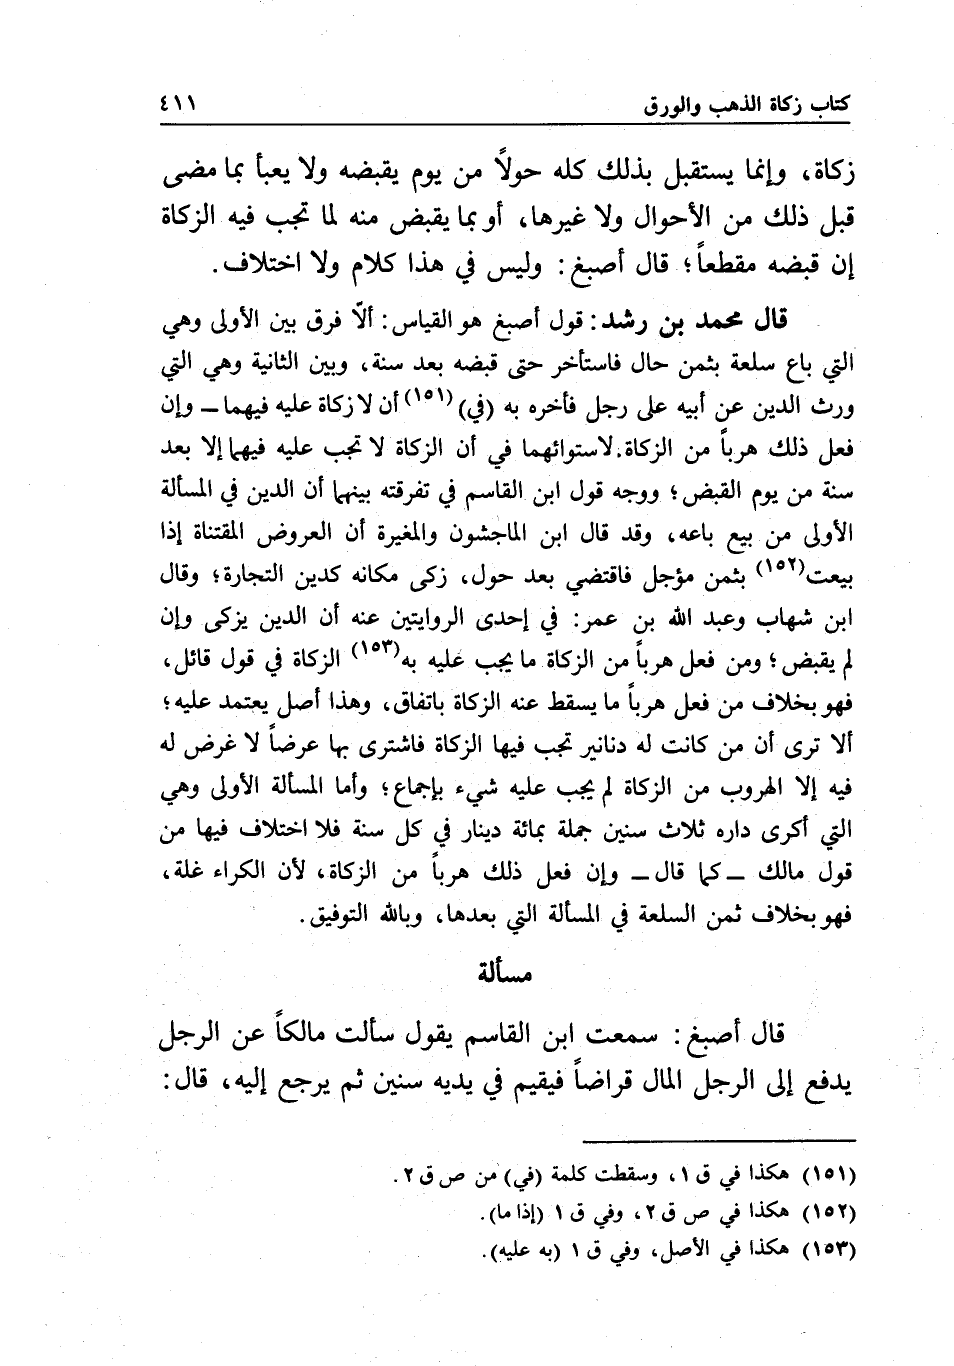 كتاب زكاة الذهب والورق ٤١١
زكاة، وإنما يستقبل بذلك كله حولاً من يوم يقبضه ولا يعبأ بما مضى
قبل ذلك من الأحوال ولا غيرها، أو بما يقبض منه لما تجب فيه الزكاة
إن قبضه مقطعاً؛ قال أصبغ: وليس في هذا كلام ولا اختلاف.
قال محمد بن رشد: قول أصبغ هو القياس: ألّا فرق بين الأولى وهي
التي باع سلعة بثمن حال فاستأخر حتى قبضه بعد سنة، وبين الثانية وهي التي
ورث الدين عن أبيه على رجل فأخره به (في) (١٥١) أن لا زكاة عليه فيهما ــ وإن
فعل ذلك هرباً من الزكاة. لاستوائهما في أن الزكاة لا تجب عليه فيهما إلا بعد
سنة من يوم القبض؛ ووجه قول ابن القاسم في تفرقته بينهما أن الدين في المسألة
الأولى من بيع باعه، وقد قال ابن الماجشون والمغيرة أن العروض المقتناة إذا
بيعت(١٥٢) بثمن مؤجل فاقتضي بعد حول، زكى مكانه كدين التجارة؛ وقال
ابن شهاب وعبد الله بن عمر: في إحدى الروايتين عنه أن الدين يزكى وإن
لم يقبض؛ ومن فعل هرباً من الزكاة ما يجب عليه به(١٥٣) الزكاة في قول قائل،
فهو بخلاف من فعل هرباً ما يسقط عنه الزكاة باتفاق، وهذا أصل يعتمد عليه؛
ألا ترى أن من كانت له دنانير تجب فيها الزكاة فاشترى بها عرضاً لا غرض له
فيه إلا الهروب من الزكاة لم يجب عليه شيء بإجماع؛ وأما المسألة الأولى وهي
التي أكرى داره ثلاث سنين جملة بمائة دينار في كل سنة فلا اختلاف فيها من
قول مالك ــ كما قال ــ وإن فعل ذلك هرباً من الزكاة، لأن الكراء غلة،
فهو بخلاف ثمن السلعة في المسألة التي بعدها، وبالله التوفيق.
مسألة
قال أصبغ: سمعت ابن القاسم يقول سألت مالكاً عن الرجل
يدفع إلى الرجل المال قراضاً فيقيم في يديه سنين ثم يرجع إليه، قال:
(١٥١) هكذا في ق ١، وسقطت كلمة (في) من ص ق ٢.
(١٥٢) هكذا في ص ق ٢، وفي ق ١ (إذا ما).
(١٥٣) هكذا في الأصل، وفي ق ١ (به عليه).